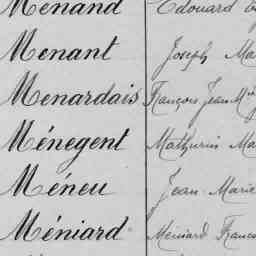 Menand Edouard
Menant Joseph Ma
Menardais François Jean M
Ménegent Mathurin Ma
Méneu Jean Marie
Méniard Méniard Franco